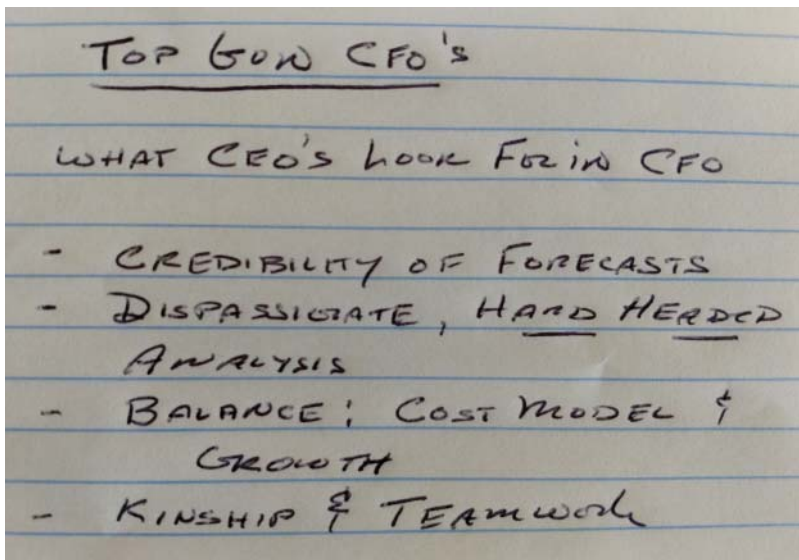 TOP GUN CFO'S
WHAT CEO'S LOOK FOR IN CFO
- CREDIBILITY OF FORECASTS
- DISPASSIONATE, HARD HEADED
ANALYSIS
- BALANCE: COST MODEL &
GROWTH
- KINSHIP & TEAMWORK